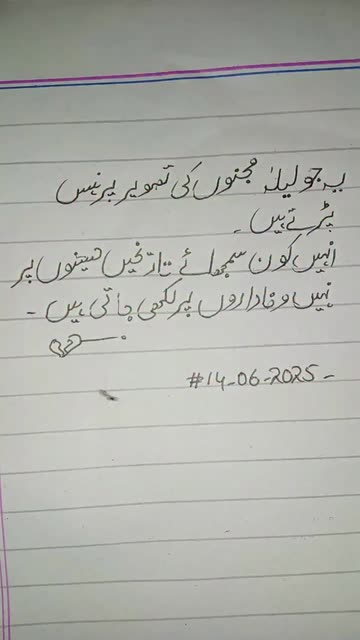 یہ جو لیلیٰ مجنوں کی تصویر پر ہنس
پڑتے ہیں ۔
انہیں کون سمجھائے تاریخیں حسینوں پر
نہیں وفاداروں پر لکھی جاتی ہیں ۔
#14-06-2025-